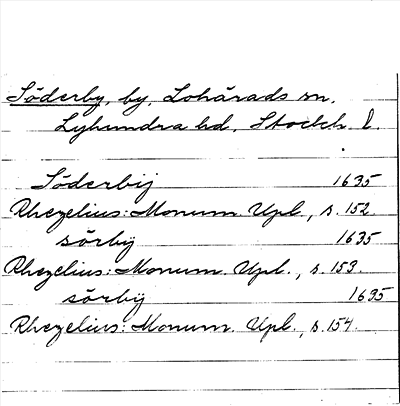 Söderby, by, Lohärads sn,
Lyhundra hd, Stockh. l.
Söderbÿ 1635
Rhezelius: Monum. Upl., s. 152
sörbÿ 1635
Rhezelius: Monum. Upl., s. 153.
sörbÿ 1635
Rhezelius: Monum. Upl., s. 154.